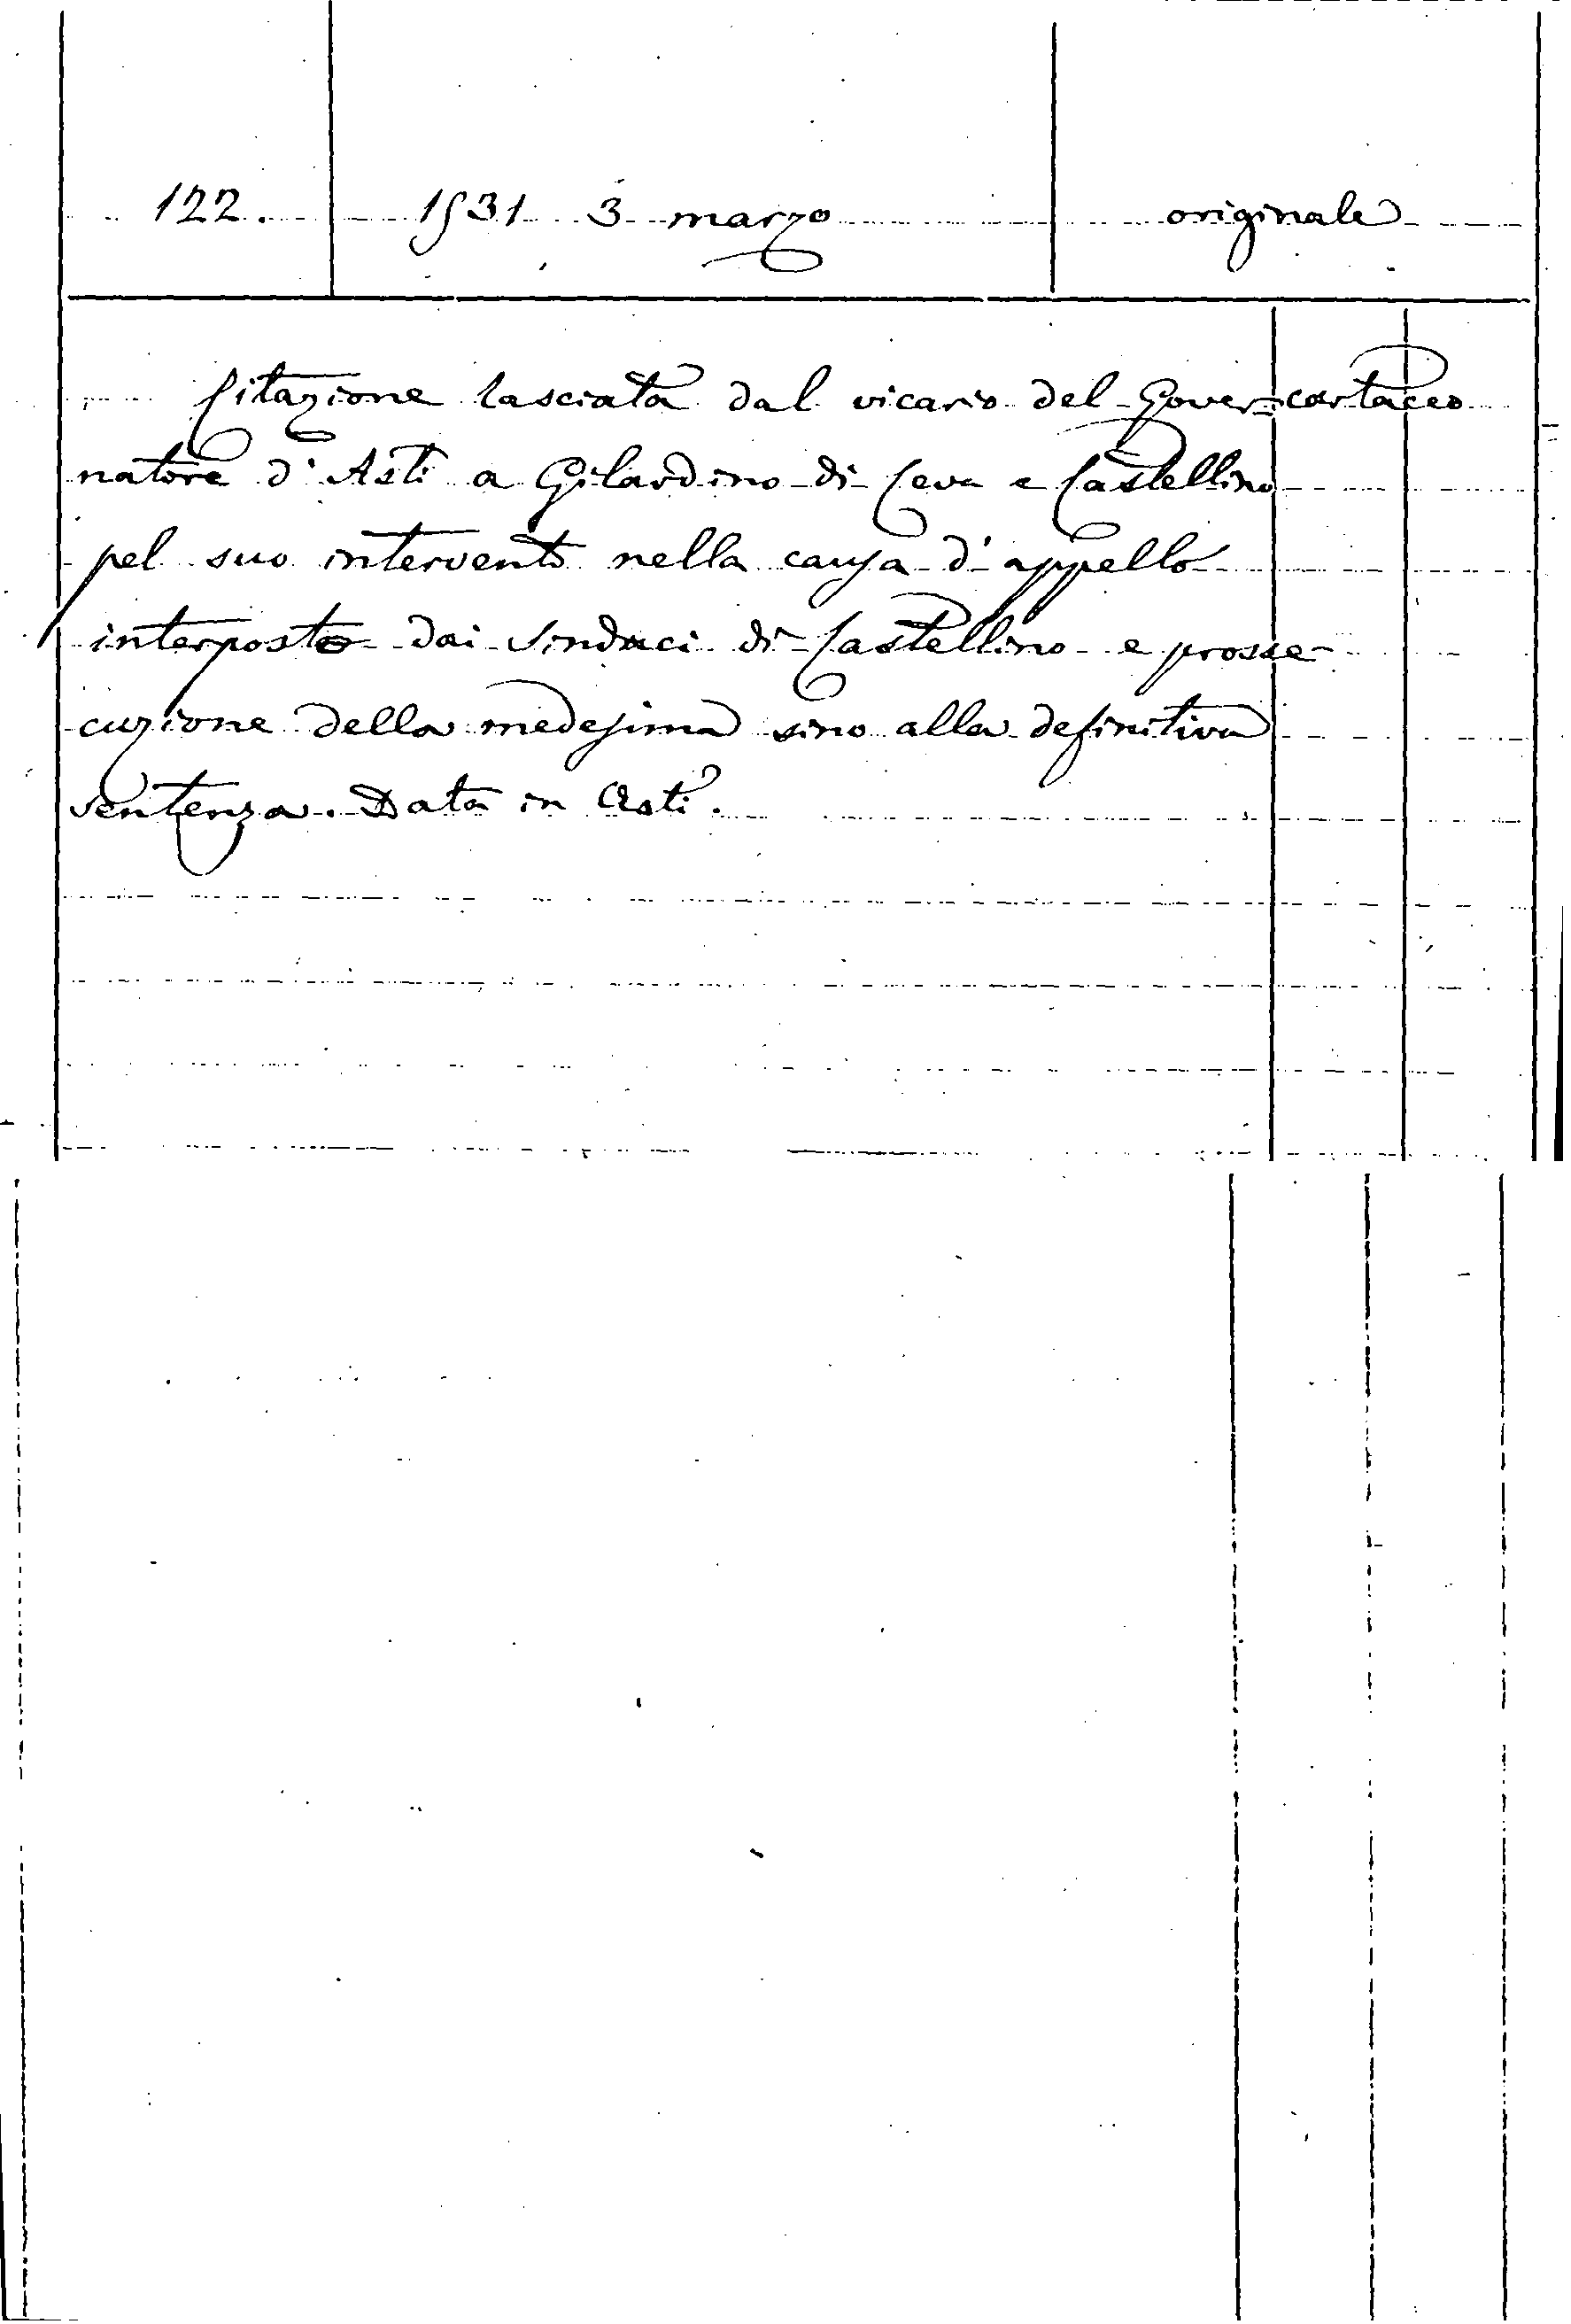 122. 1531 3 marzo originale
Citazione lasciata dal vicario del Gover= cartaceo
natore d'Asti a Gilardino di Ceva e Castellino
pel suo intervento nella causa d'appello
interposto dai Sindaci di Castellino e prosse-
cuzione della medesima sino alla definitiva
sentenza. Data in Asti.